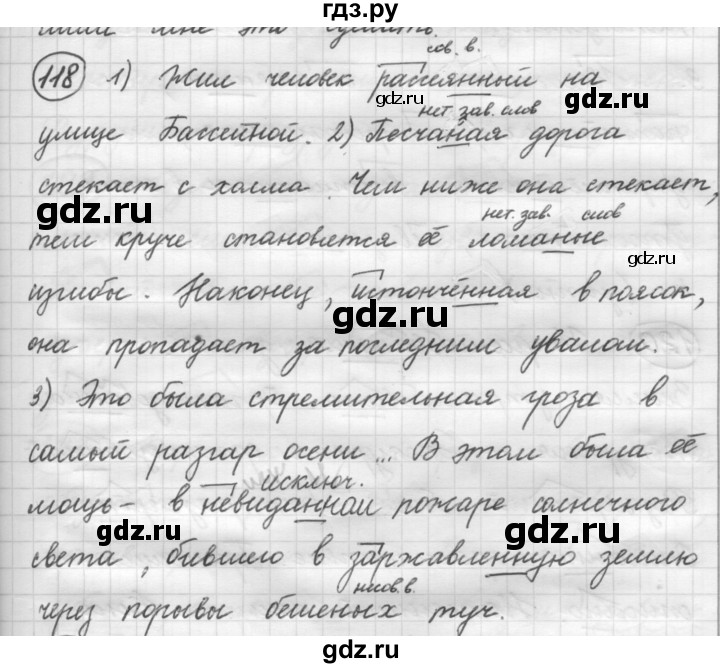 гдз.ру
мне это сделать.
сов. в.
118 1) Жил человек рассеянный на
gdz.ru
нет зав. слов
улице Бассейной. 2) Песчаная дорога
стекает с холма. Чем ниже она стекает,
gdz.ru
нет. зав. слов
тем круче становятся её ломаные
gdz.ru
изгибы. Наконец, истончённая в поясок,
gdz.ru
она пропадает за последним увалом.
3) Это была стремительная гроза в
самый разгар осени... В этом была её
исключ.
мощь – в невиданном пожаре солнечного
gdz.ru gdz.ru
света, бившего в заржавленную землю
несов. в.
через порывы бешеных туч.
gdz.ru
gdz.ru